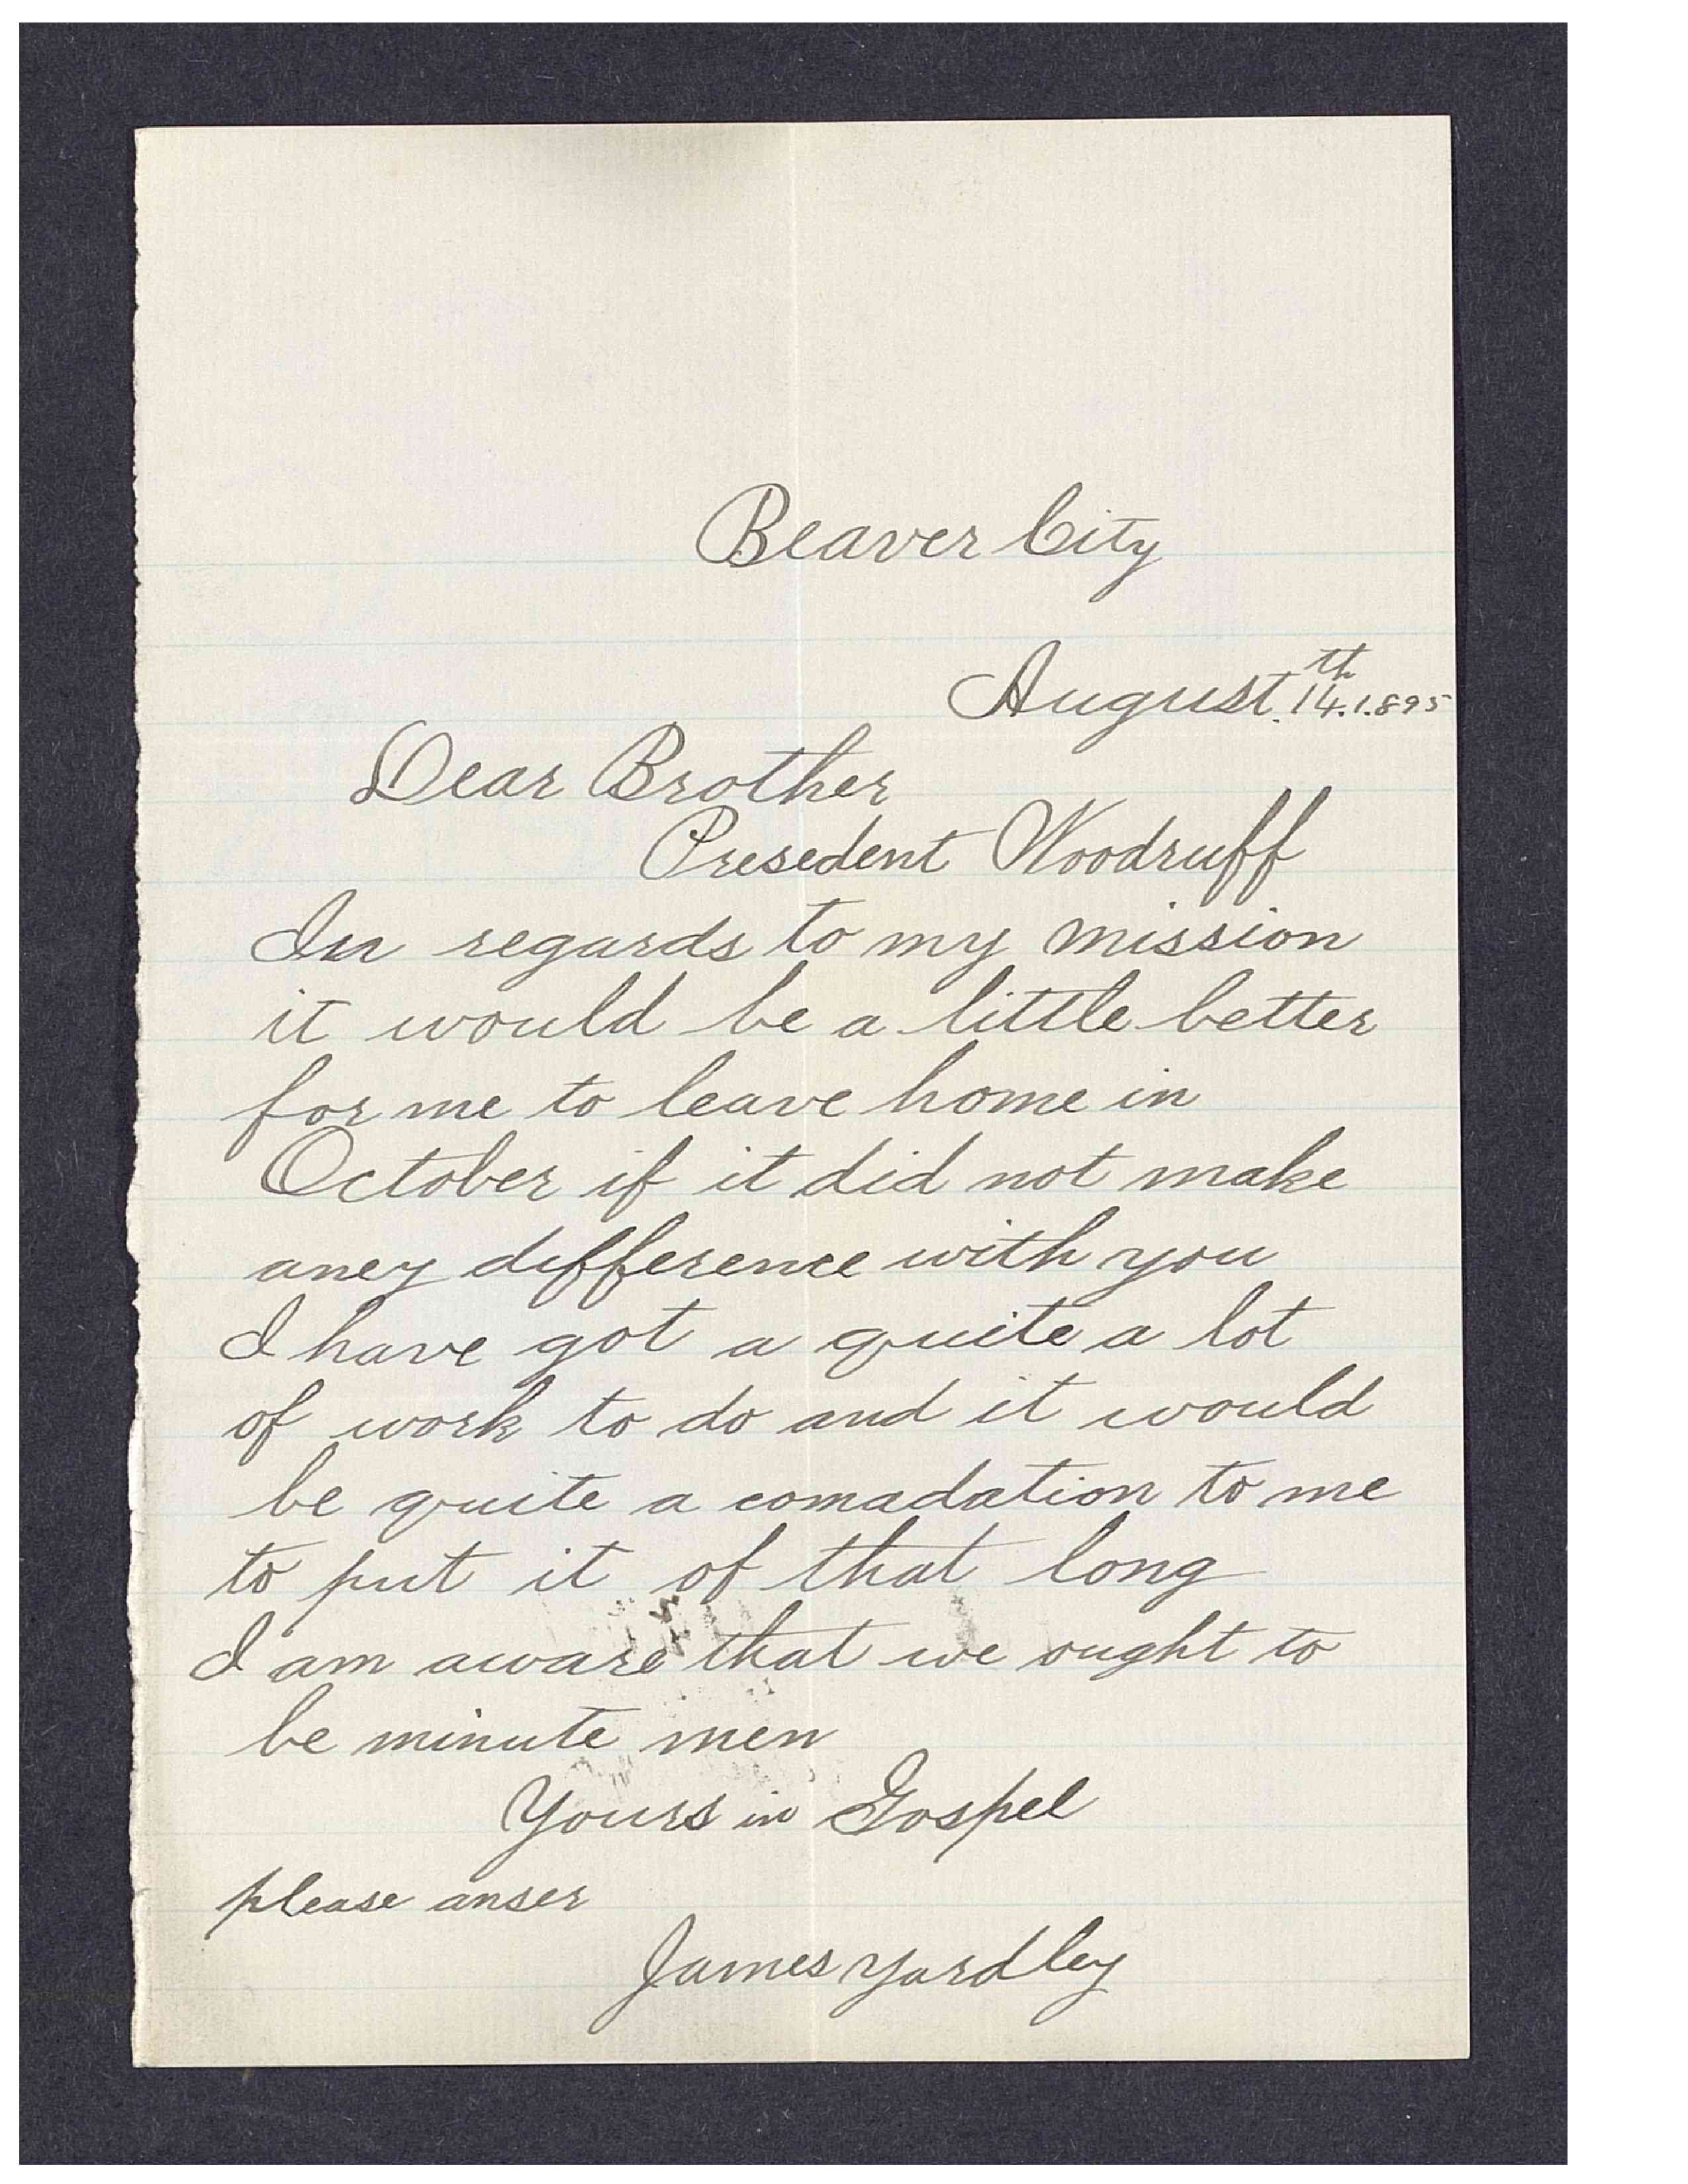 Beaver City
August. 14th.1.895
Dear Brother
Presedent Woodruff
In regards to my mission
it would be a little better
for me to leave home in
October if it did not make
aney difference with you
I have got a quite a lot
of work to do and it would
be quite a comadation to me
to put it of that long
I am aware that we ought to
be minute men
Yours in Gospel
please anser
James Yardley